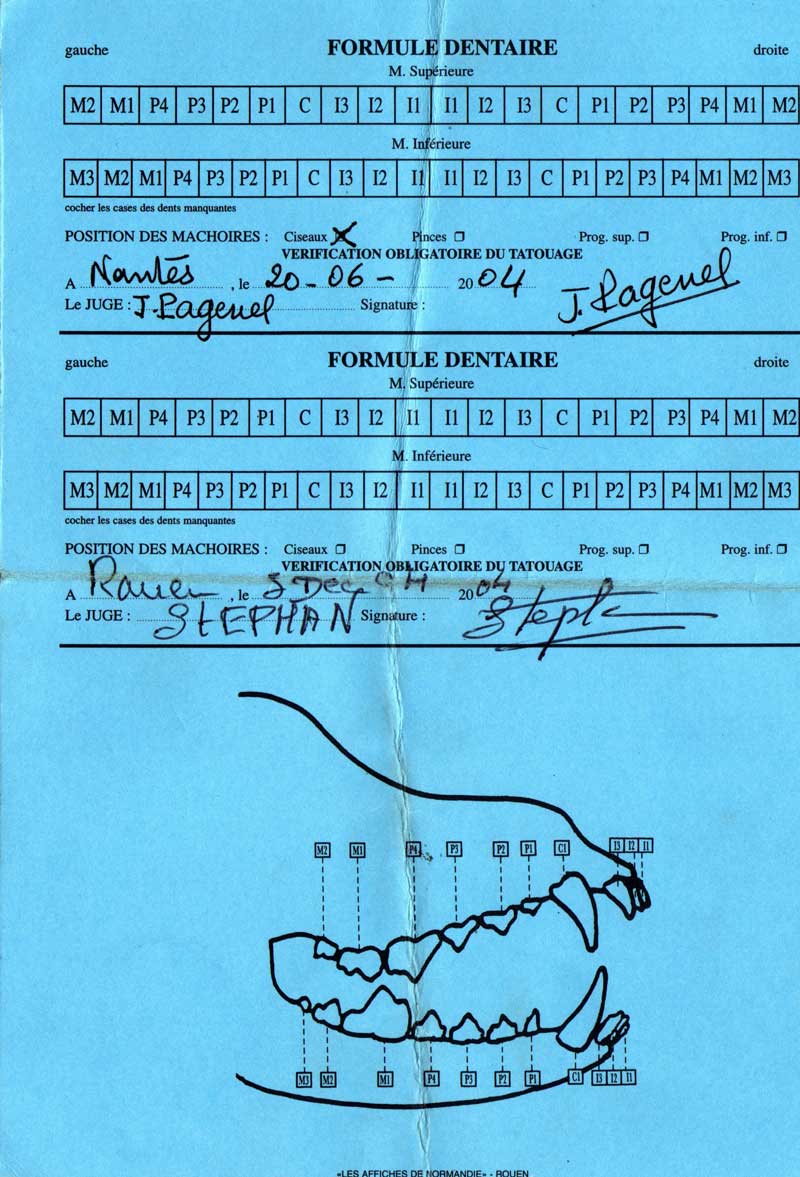 gauche FORMULE DENTAIRE droite
M. Supérieure
M2 M1 P4 P3 P2 P1 C I3 I2 I1 I1 I2 I3 C P1 P2 P3 P4 M1 M2
M. Inférieure
M3 M2 M1 P4 P3 P2 P1 C I3 I2 I1 I1 I2 I3 C P1 P2 P3 P4 M1 M2 M3
cocher les cases des dents manquantes
POSITION DES MACHOIRES : Ciseaux Pinces Prog. sup. Prog. inf.
VERIFICATION OBLIGATOIRE DU TATOUAGE
A Nantes , le 20-06- 2004
Le JUGE : J. Pagenel Signature : J. Pagenel
gauche FORMULE DENTAIRE droite
M. Supérieure
M2 M1 P4 P3 P2 P1 C I3 I2 I1 I1 I2 I3 C P1 P2 P3 P4 M1 M2
M. Inférieure
M3 M2 M1 P4 P3 P2 P1 C I3 I2 I1 I1 I2 I3 C P1 P2 P3 P4 M1 M2 M3
cocher les cases des dents manquantes
POSITION DES MACHOIRES : Ciseaux Pinces Prog. sup. Prog. inf.
VERIFICATION OBLIGATOIRE DU TATOUAGE
A Rouen , le 5 Dec 04 2004
Le JUGE : STEPHAN Signature :
M2 M1 P4 P3 P2 P1 C1 I3 I2 I1
M3 M2 M1 P4 P3 P2 P1 C1 I3 I2 I1
«LES AFFICHES DE NORMANDIE» - ROUEN